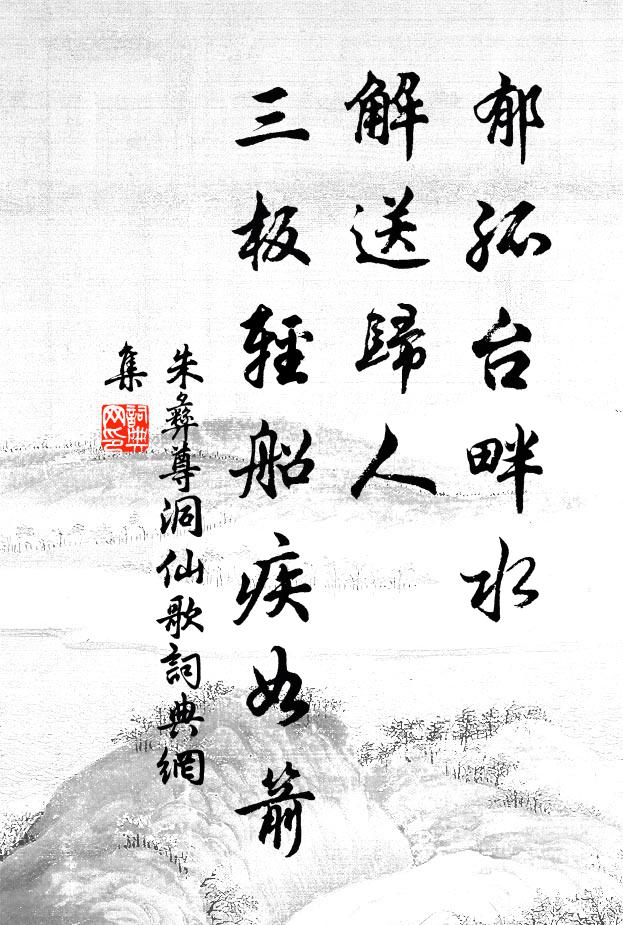 郁孤台畔水
解送歸人
三板輕船疾如箭
朱彝尊洞仙歌詞典網
集
詞典
网印